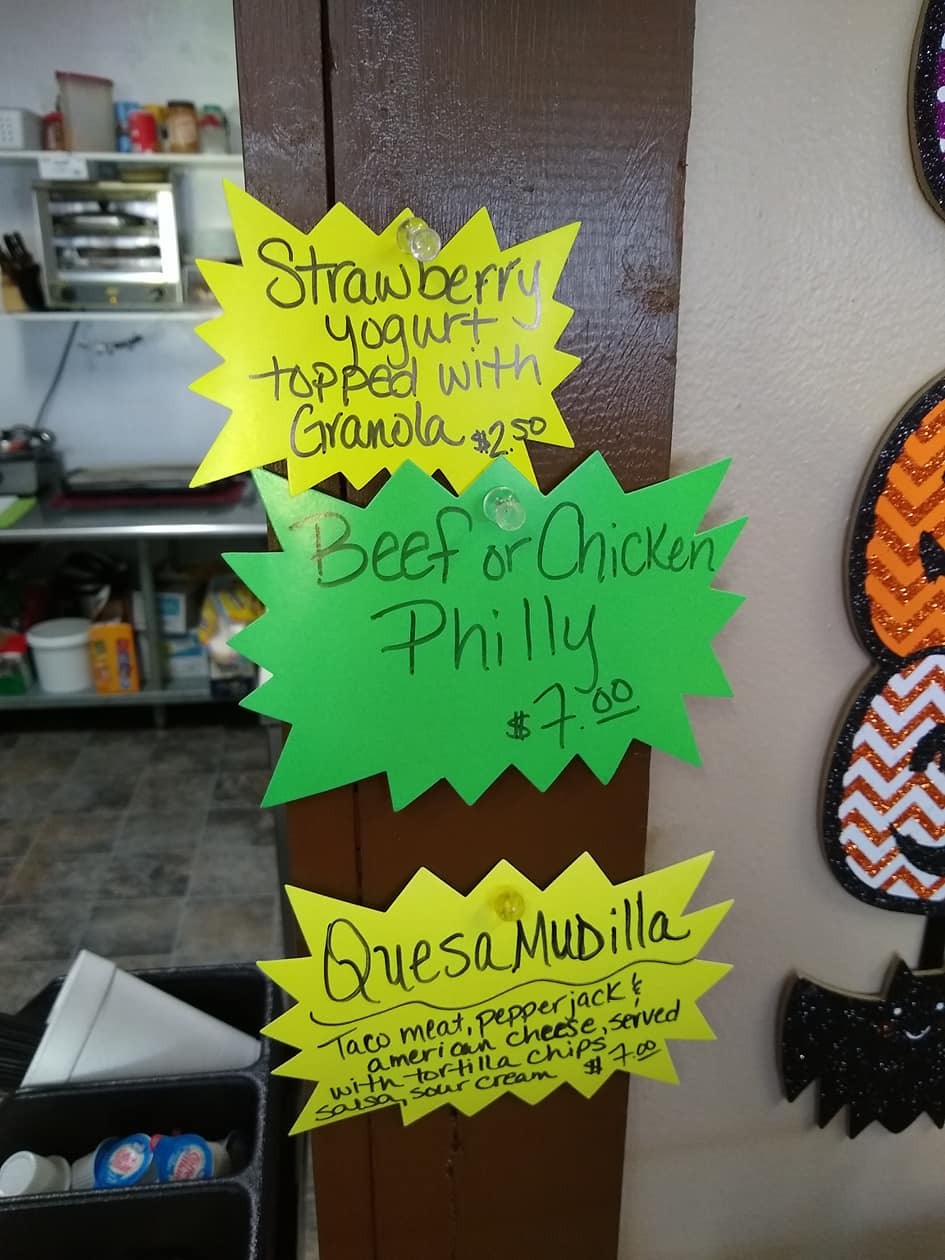 Strawberry
yogurt
topped with
Granola $2.50
Beef or Chicken
Philly
$7.00
QuesaMuDilla
Taco meat, pepper jack &
american cheese, served
with tortilla chips
salsa, sour cream $7.00